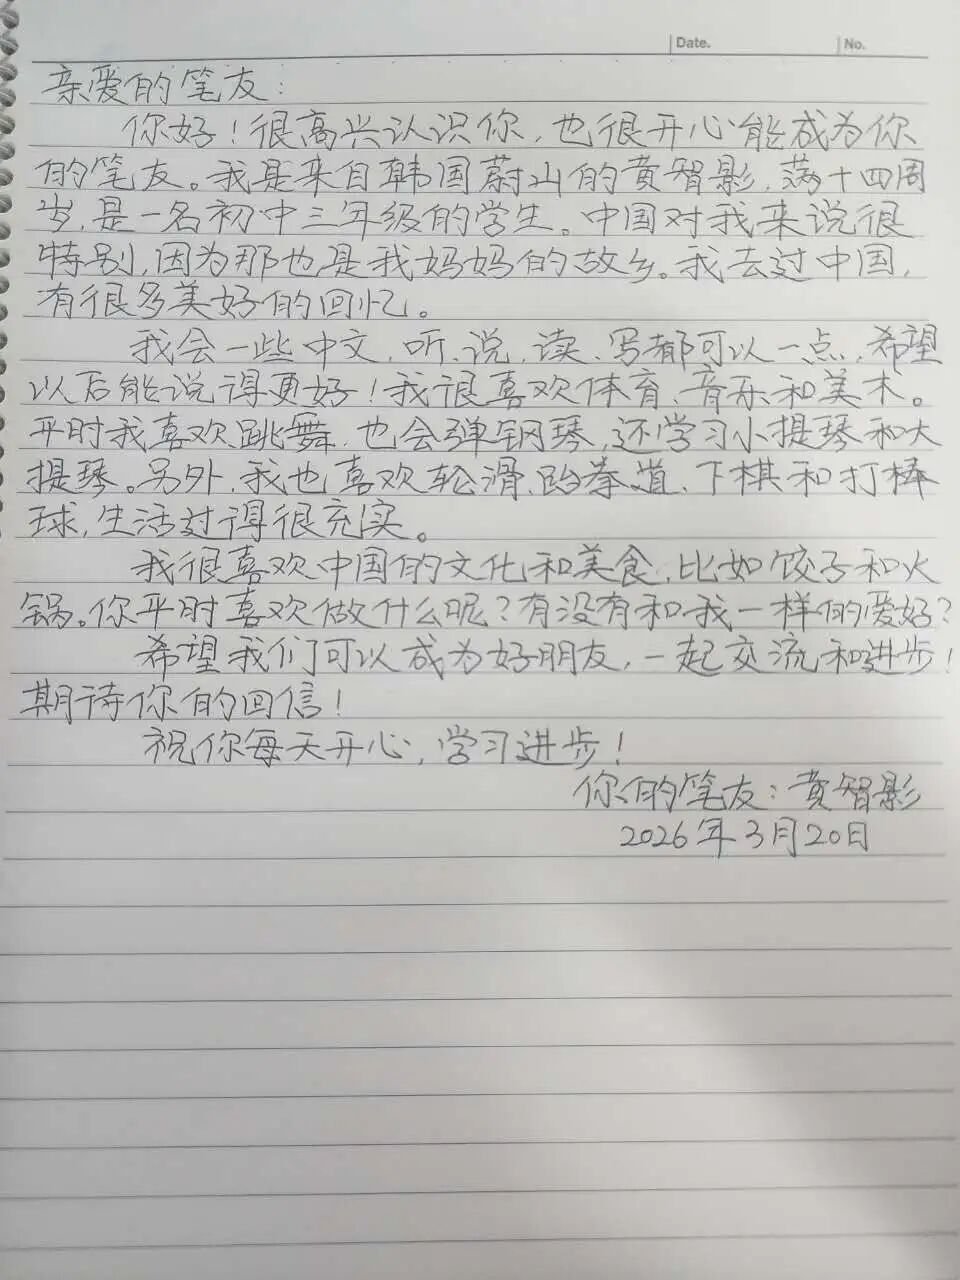 Date.
No.
亲爱的笔友：
你好！很高兴认识你，也很开心能成为你
的笔友。我是来自韩国蔚山的黄智影，满十四周
岁，是一名初中三年级的学生。中国对我来说很
特别，因为那也是我妈妈的故乡。我去过中国，
有很多美好的回忆。
我会一些中文，听、说、读、写都可以一点，希望
以后能说得更好！我很喜欢体育、音乐和美术。
平时我喜欢跳舞，也会弹钢琴，还学习小提琴和大
提琴。另外，我也喜欢轮滑、跆拳道、下棋和打棒
球，生活过得很充实。
我很喜欢中国的文化和美食，比如饺子和火
锅。你平时喜欢做什么呢？有没有和我一样的爱好？
希望我们可以成为好朋友，一起交流和进步！
期待你的回信！
祝你每天开心，学习进步！
你的笔友：黄智影
2026年3月20日